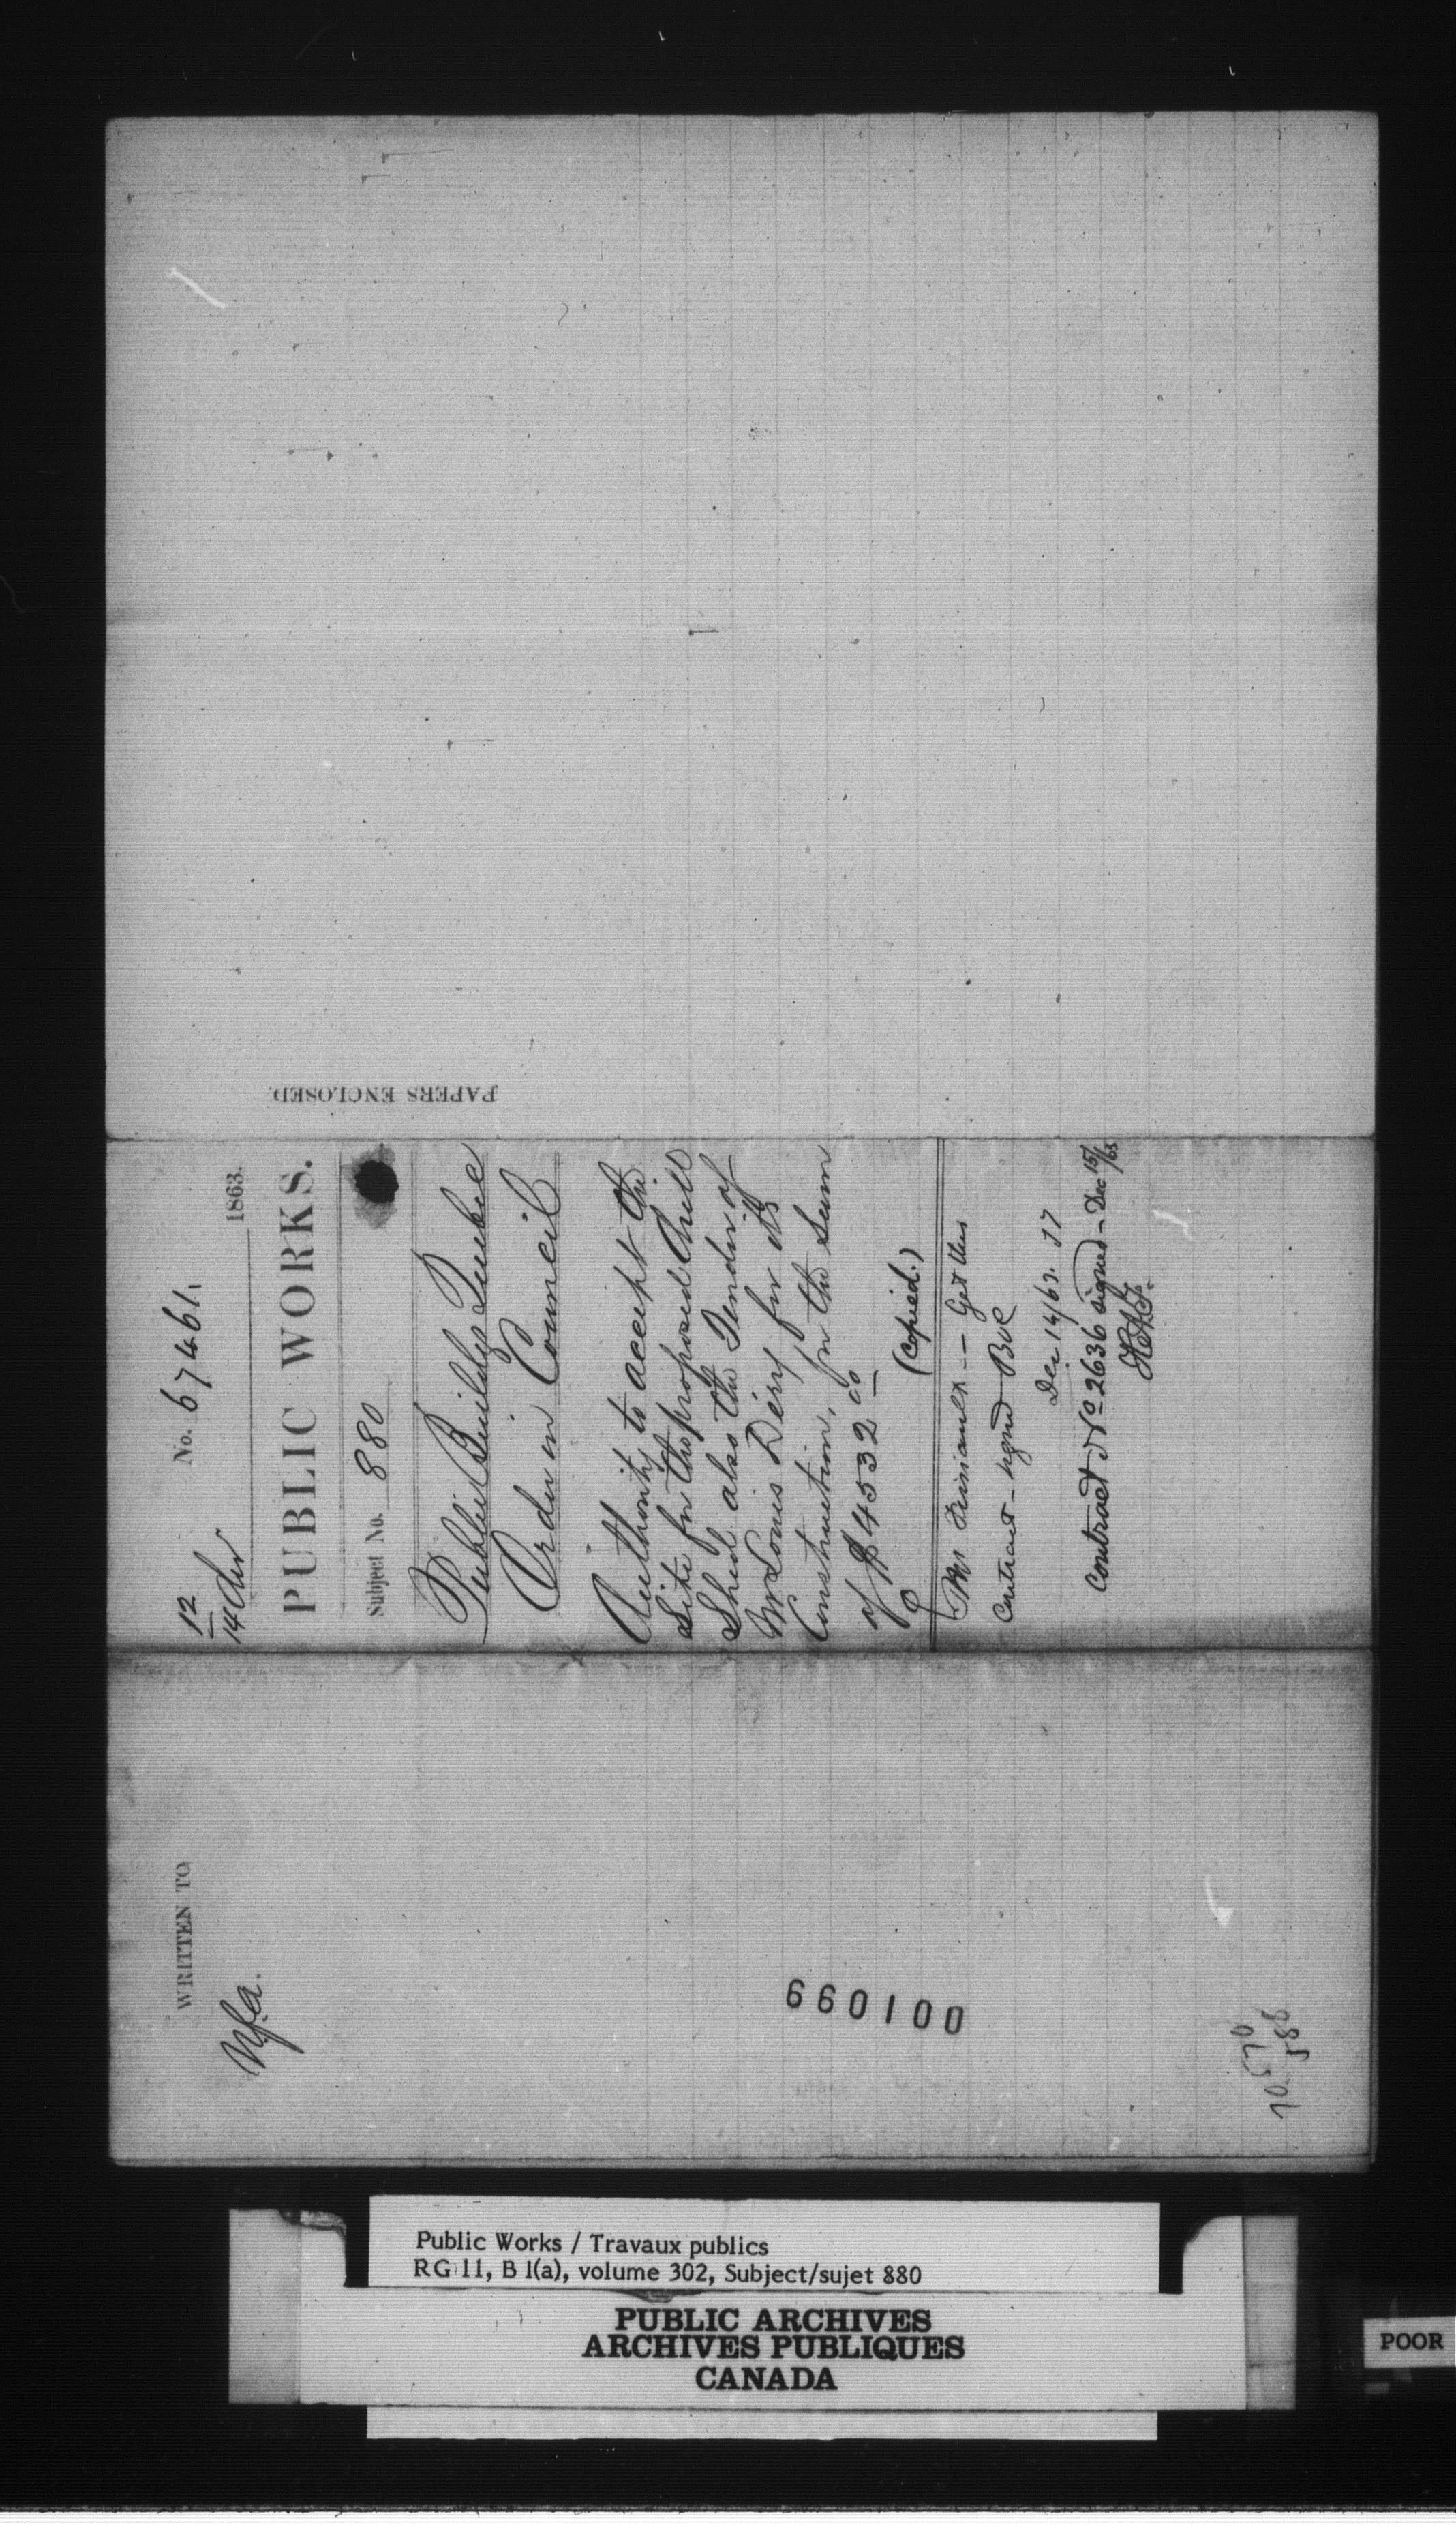 PAPERS ENCLOSED.
No. 67461.
12
14 Dec 1863.
PUBLIC WORKS.
Subject No. 880
Public Buildgs Quebec
Order in Council
Authority to accept the
Site for the proposed Drill
Shed also the Tender of
Mr Louis Dery for its
Construction, for the Sum
of $4532.00
(Copied.)
Mr -- Get this
Contract - signed
Dec 14/63.
Contract No 2636 signed - Dec 15/63
WRITTEN TO
Nfa.
001099
Public Works / Travaux publics
RG 11, B 1(a), volume 302, Subject/sujet 880
PUBLIC ARCHIVES
ARCHIVES PUBLIQUES
CANADA
POOR